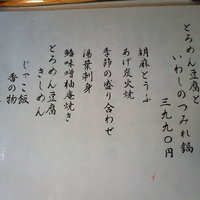 とろめん豆腐と
いわしのつみれ鍋
三九九〇円
胡麻とうふ
あげ炭火焼
季節の盛り合わせ
湯葉刺身
鰆味噌柚庵焼き
とろめん豆腐
きしめん
じゃこ飯
香の物